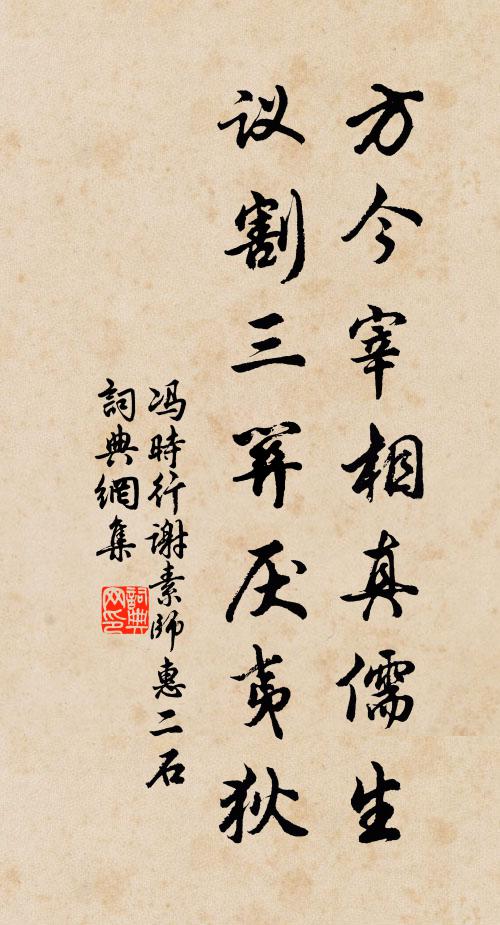 方今宰相真儒生
议割三关厌夷狄
冯時行谢素師惠二石
詞典網集
詞典网印